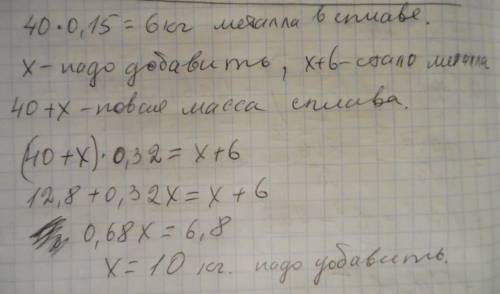 40·0,15 = 6 кг металла в сплаве.
x - надо добавить, x+6 - стало металла
40+x - новая масса сплава.
(40+x)·0,32 = x+6
12,8+0,32x = x+6
0,68x = 6,8
x = 10 кг. надо добавить.